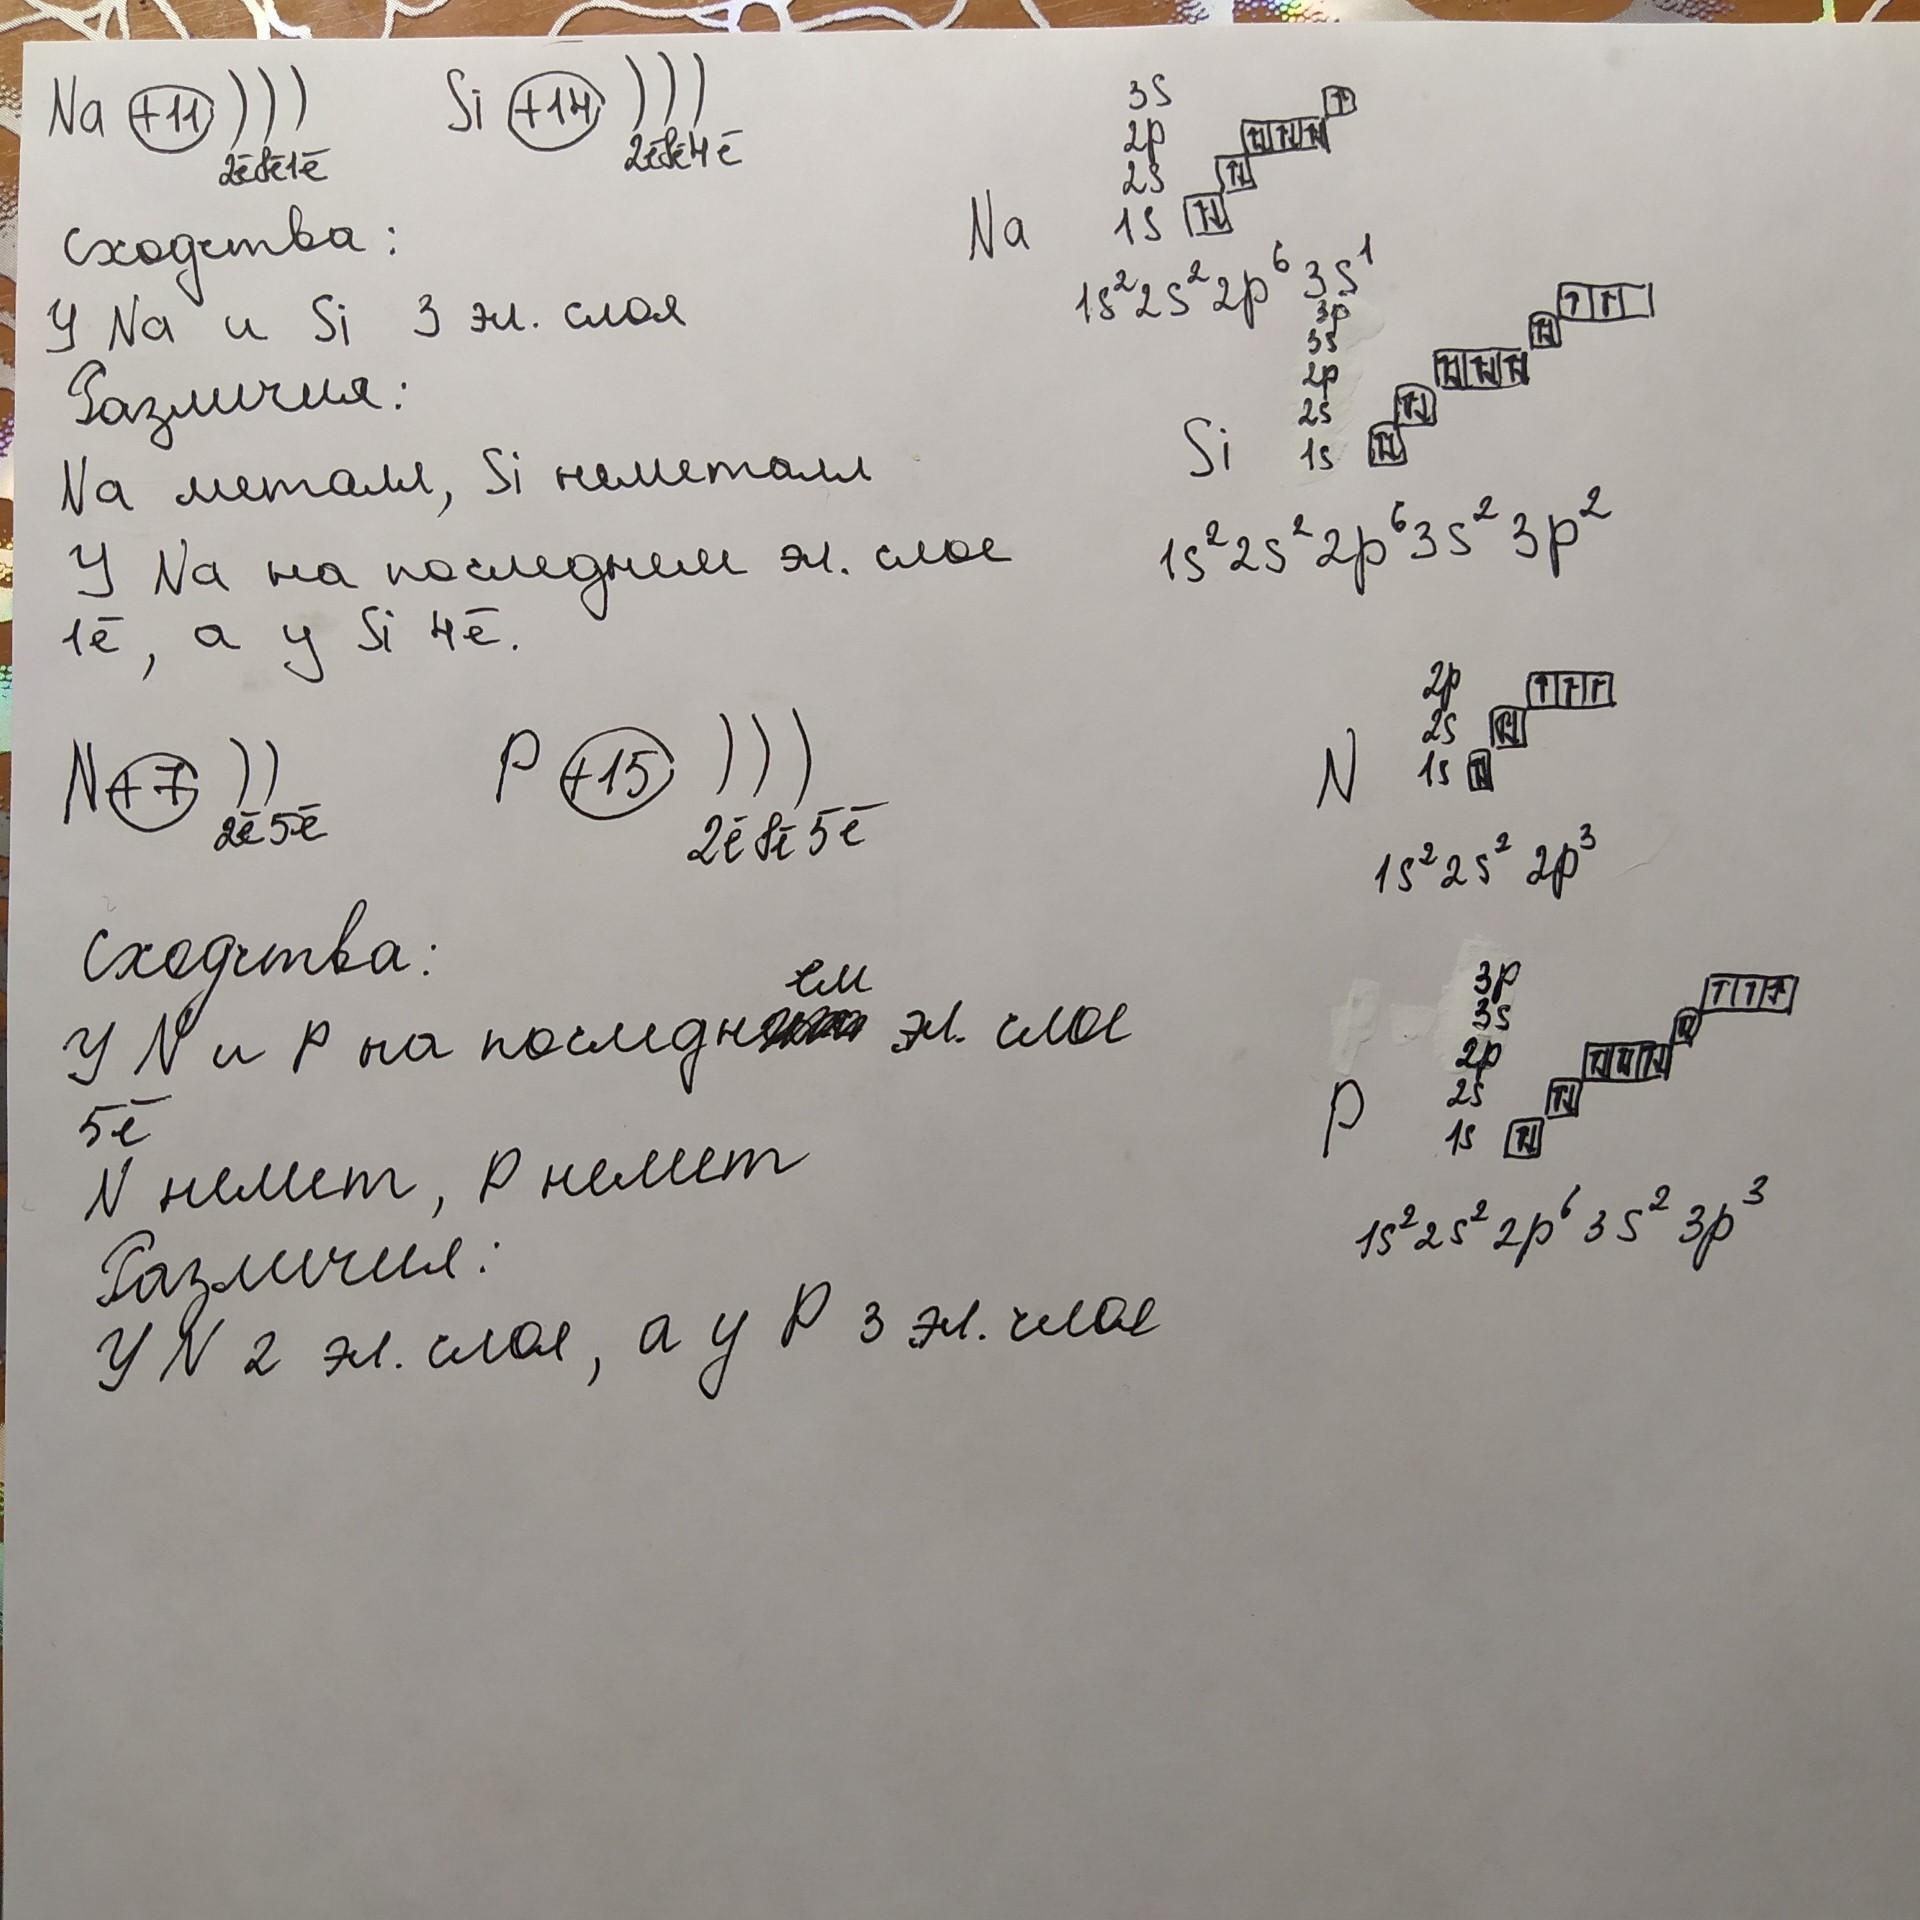 Na +11 ) ) )
2ē8ē1ē
Si +14 ) ) )
2ē8ē4ē
Сходства:
У Na и Si 3 эл. слоя
Различия:
Na металл, Si неметалл
У Na на последнем эл. слое
1ē, а у Si 4ē.
Na
3s
2p
2s
1s
1s²2s²2p⁶3s¹
Si
3p
3s
2p
2s
1s
1s²2s²2p⁶3s²3p²
N +7 ) )
2ē5ē
P +15 ) ) )
2ē8ē5ē
Сходства:
У N и P на последнем эл. слое
5ē
N немет, P немет
Различия:
У N 2 эл. слоя, а у P 3 эл. слое
N
2p
2s
1s
1s²2s²2p³
P
3p
3s
2p
2s
1s
1s²2s²2p⁶3s²3p³